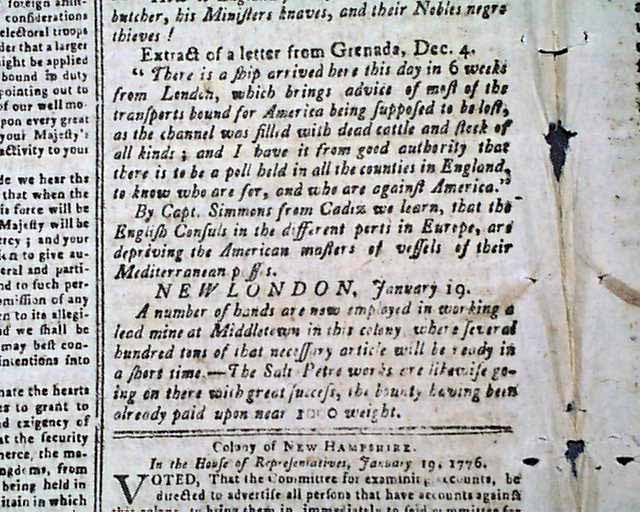 foreign ship-
considerations
electoral troops
der that a larger
might be applied
bound in duty
pointing out to
of our well mo-
upon every great
your Majesty's
activity to your
de we hear ths
that when the
is force will be
Majesty will be
ercy ; and your
en to give au-
eral and parti-
nd to such per-
omission of any
n to its allegi-
nd we shall be
may best con-
intentions into
nate the hearts
es to grant to
nd exigency of
at the security
merce, the ma-
ngdoms, from
being held in
itain in which
butcher, his Ministers knaves, and their Nobles negro
thieves !
Extract of a letter from Grenada, Dec. 4.
“ There is a ship arrived here this day in 6 weeks
from London, which brings advice of most of the
transports bound for America being supposed to be lost,
as the channel was filled with dead cattle and stock of
all kinds ; and I have it from good authority that
there is to be a poll held in all the counties in England,
to know who are for, and who are against America.”
By Capt. Simmons from Cadiz we learn, that the
English Consuls in the different ports in Europe, are
depriving the American masters of vessels of their
Mediterranean passes.
NEW LONDON, January 19.
A number of hands are now employed in working a
lead mine at Middletown in this colony, where several
hundred tons of that necessary article will be ready in
a short time.—The Salt Petre works are likewise go-
ing on there with great success, the bounty having been
already paid upon near 1000 weight.
Colony of NEW HAMPSHIRE.
In the House of Representatives, January 19, 1776.
VOTED, That the Committee for examining accounts, be
directed to advertise all persons that have accounts against
this colony, to bring them in, immediately to said committee for